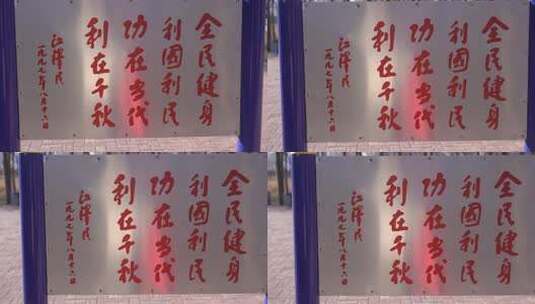 全民健身
利國利民
功在当代
利在千秋
江泽民
一九九七年八月十六日
全民健身
利國利民
功在当代
利在千秋
江泽民
一九九七年八月十六日
全民健身
利國利民
功在当代
利在千秋
江泽民
一九九七年八月十六日
全民健身
利國利民
功在当代
利在千秋
江泽民
一九九七年八月十六日